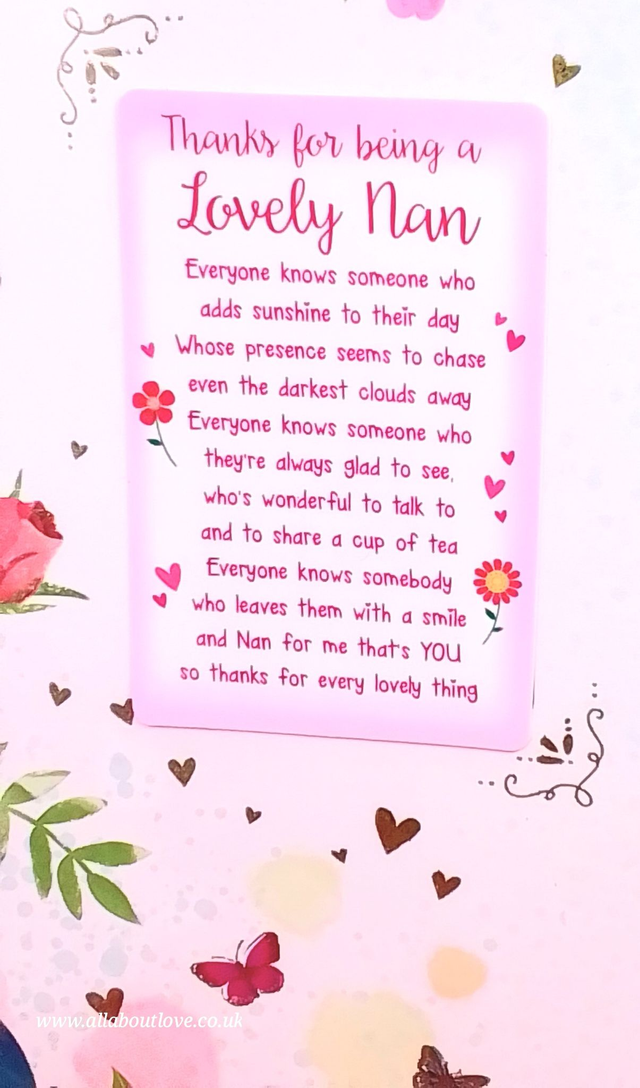 Thanks for being a
Lovely Nan
Everyone knows someone who
adds sunshine to their day
Whose presence seems to chase
even the darkest clouds away
Everyone knows someone who
they're always glad to see,
who's wonderful to talk to
and to share a cup of tea
Everyone knows somebody
who leaves them with a smile
and Nan for me that's YOU
so thanks for every lovely thing
www.allaboutlove.co.uk